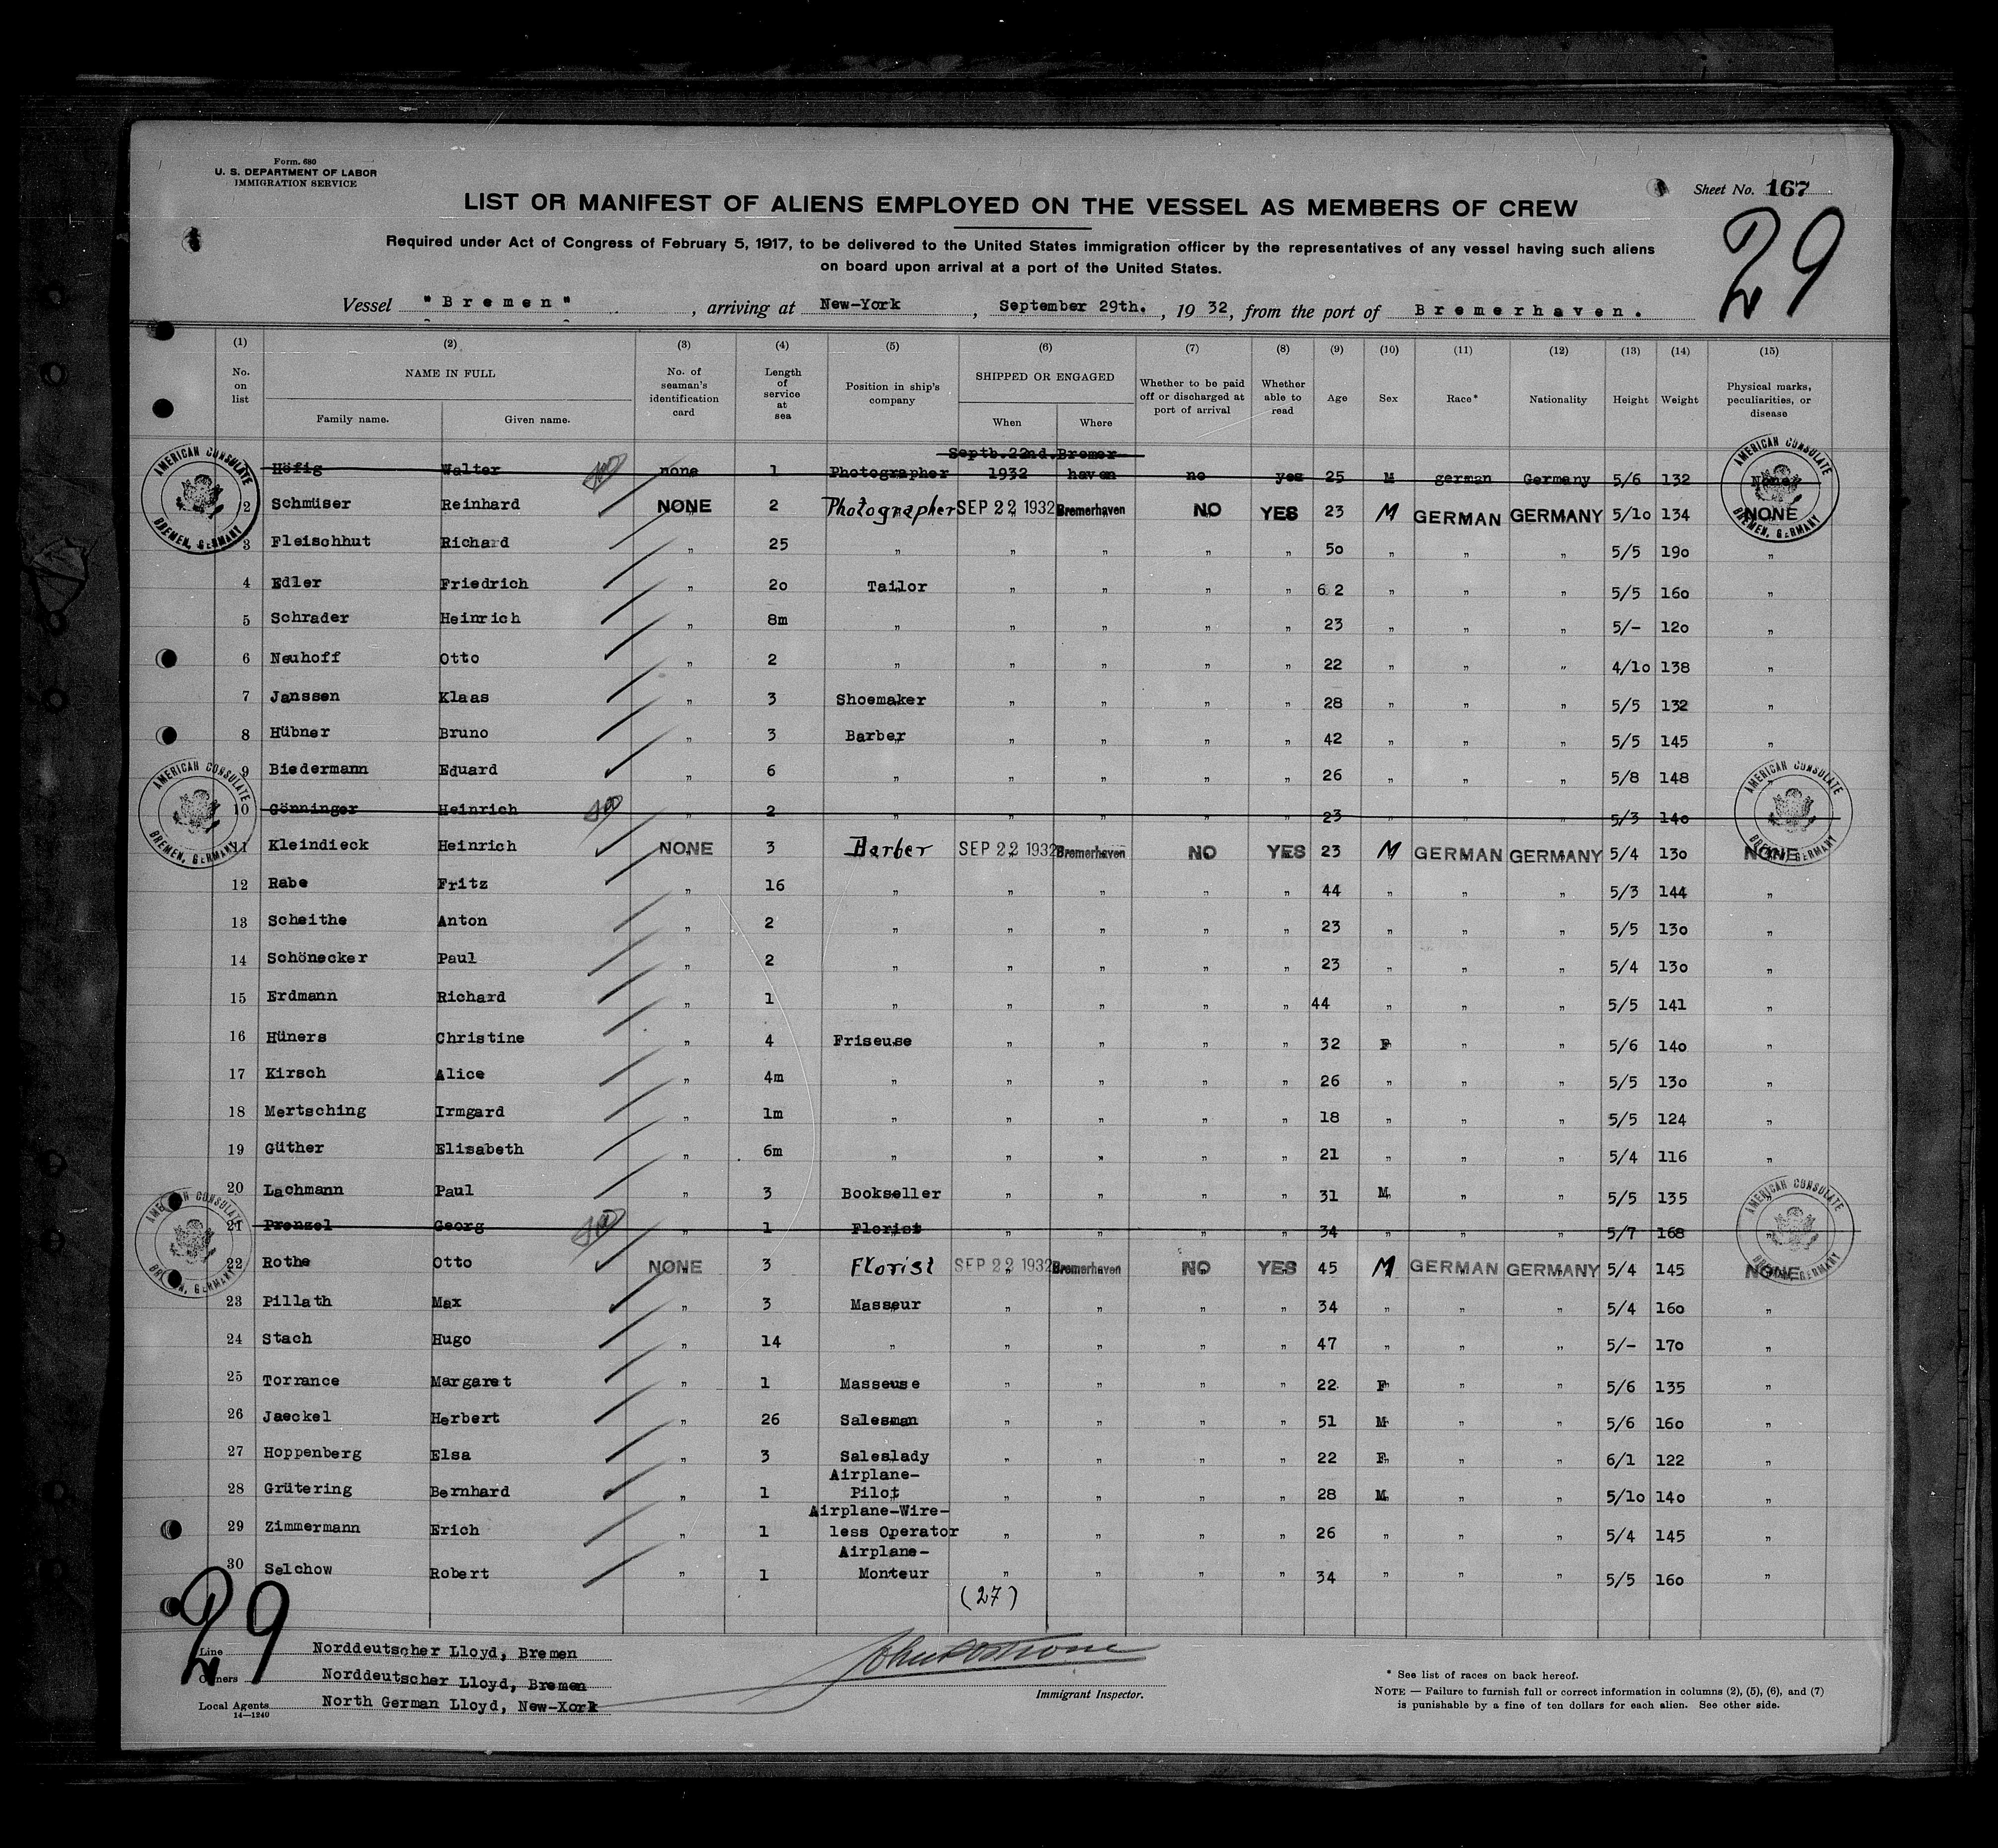 Form. 680
U. S. DEPARTMENT OF LABOR
IMMIGRATION SERVICE
Sheet No. 167
LIST OR MANIFEST OF ALIENS EMPLOYED ON THE VESSEL AS MEMBERS OF CREW
29
Required under Act of Congress of February 5, 1917, to be delivered to the United States immigration officer by the representatives of any vessel having such aliens
on board upon arrival at a port of the United States.
Vessel "Bremen", arriving at New-York, September 29th., 1932, from the port of Bremerhaven.
(1) (2) (3) (4) (5) (6) (7) (8) (9) (10) (11) (12) (13) (14) (15)
No. on list NAME IN FULL Family name. Given name. No. of seaman's identification card Length of service at sea Position in ship's company SHIPPED OR ENGAGED When Where Whether to be paid off or discharged at port of arrival Whether able to read Age Sex Race* Nationality Height Weight Physical marks, peculiarities, or disease
AMERICAN CONSULATE BREMEN, GERMANY
AMERICAN CONSULATE BREMEN, GERMANY
Septb.22nd. Bremer-
Höfig Walter none 1 Photographer 1932 haven no yes 25 M german Germany 5/6 132 None
2 Schmüser Reinhard NONE 2 Photographer SEP 22 1932 Bremerhaven NO YES 23 M GERMAN GERMANY 5/10 134 NONE
3 Fleischhut Richard " 25 " " " " " 50 " " " 5/5 190 "
4 Edler Friedrich " 20 Tailor " " " " 62 " " " 5/5 160 "
5 Schrader Heinrich " 8m " " " " " 23 " " " 5/- 120 "
6 Neuhoff Otto " 2 " " " " " 22 " " " 4/10 138 "
7 Janssen Klaas " 3 Shoemaker " " " " 28 " " " 5/5 132 "
8 Hübner Bruno " 3 Barber " " " " 42 " " " 5/5 145 "
9 Biedermann Eduard " 6 " " " " " 26 " " " 5/8 148 "
AMERICAN CONSULATE BREMEN, GERMANY
AMERICAN CONSULATE BREMEN, GERMANY
10 Gönninger Heinrich " 2 " " " " " 23 " " " 5/3 140
11 Kleindieck Heinrich NONE 3 Barber SEP 22 1932 Bremerhaven NO YES 23 M GERMAN GERMANY 5/4 130 NONE
12 Rabe Fritz " 16 " " " " " 44 " " " 5/3 144 "
13 Scheithe Anton " 2 " " " " " 23 " " " 5/5 130 "
14 Schönecker Paul " 2 " " " " " 23 " " " 5/4 130 "
15 Erdmann Richard " 1 " " " " " 44 " " " 5/5 141 "
16 Hüners Christine " 4 Friseuse " " " " 32 F " " 5/6 140 "
17 Kirsch Alice " 4m " " " " " 26 " " " 5/5 130 "
18 Mertsching Irmgard " 1m " " " " " 18 " " " 5/5 124 "
19 Güther Elisabeth " 6m " " " " " 21 " " " 5/4 116 "
20 Lachmann Paul " 3 Bookseller " " " " 31 M " " 5/5 135 "
AMERICAN CONSULATE BREMEN, GERMANY
AMERICAN CONSULATE BREMEN, GERMANY
21 Prenzel Georg " 1 Florist " " " " 34 " " " 5/7 168 "
22 Rothe Otto NONE 3 Florist SEP 22 1932 Bremerhaven NO YES 45 M GERMAN GERMANY 5/4 145 NONE
23 Pillath Max " 3 Masseur " " " " 34 " " " 5/4 160 "
24 Stach Hugo " 14 " " " " " 47 " " " 5/- 170 "
25 Torrance Margaret " 1 Masseuse " " " " 22 F " " 5/6 135 "
26 Jaeckel Herbert " 26 Salesman " " " " 51 M " " 5/6 160 "
27 Hoppenberg Elsa " 3 Saleslady " " " " 22 F " " 6/1 122 "
Airplane-
28 Grütering Bernhard " 1 Pilot " " " " 28 M " " 5/10 140 "
Airplane-Wire-
29 Zimmermann Erich " 1 less Operator " " " " 26 " " " 5/4 145 "
Airplane-
30 Selchow Robert " 1 Monteur " " " " 34 " " " 5/5 160 "
(27)
29
Line Norddeutscher Lloyd, Bremen
Owners Norddeutscher Lloyd, Bremen
Local Agents North German Lloyd, New-York
14—1240
Immigrant Inspector.
* See list of races on back hereof.
NOTE — Failure to furnish full or correct information in columns (2), (5), (6), and (7)
is punishable by a fine of ten dollars for each alien. See other side.